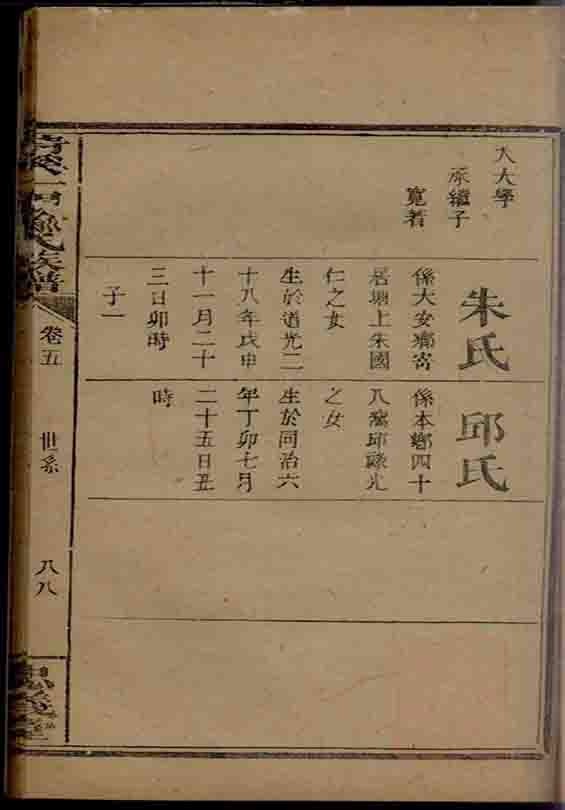 入大學
承繼子
寬若
朱氏
係大安鄉寄
居塘上朱國
仁之女
生於道光二
十八年戊申
十一月二十
三日卯時
子一
邱氏
係本鄉四十
八寨邱祿光
之女
生於同治六
年丁卯七月
二十五日丑
時
氏族譜
卷五
世系
八八